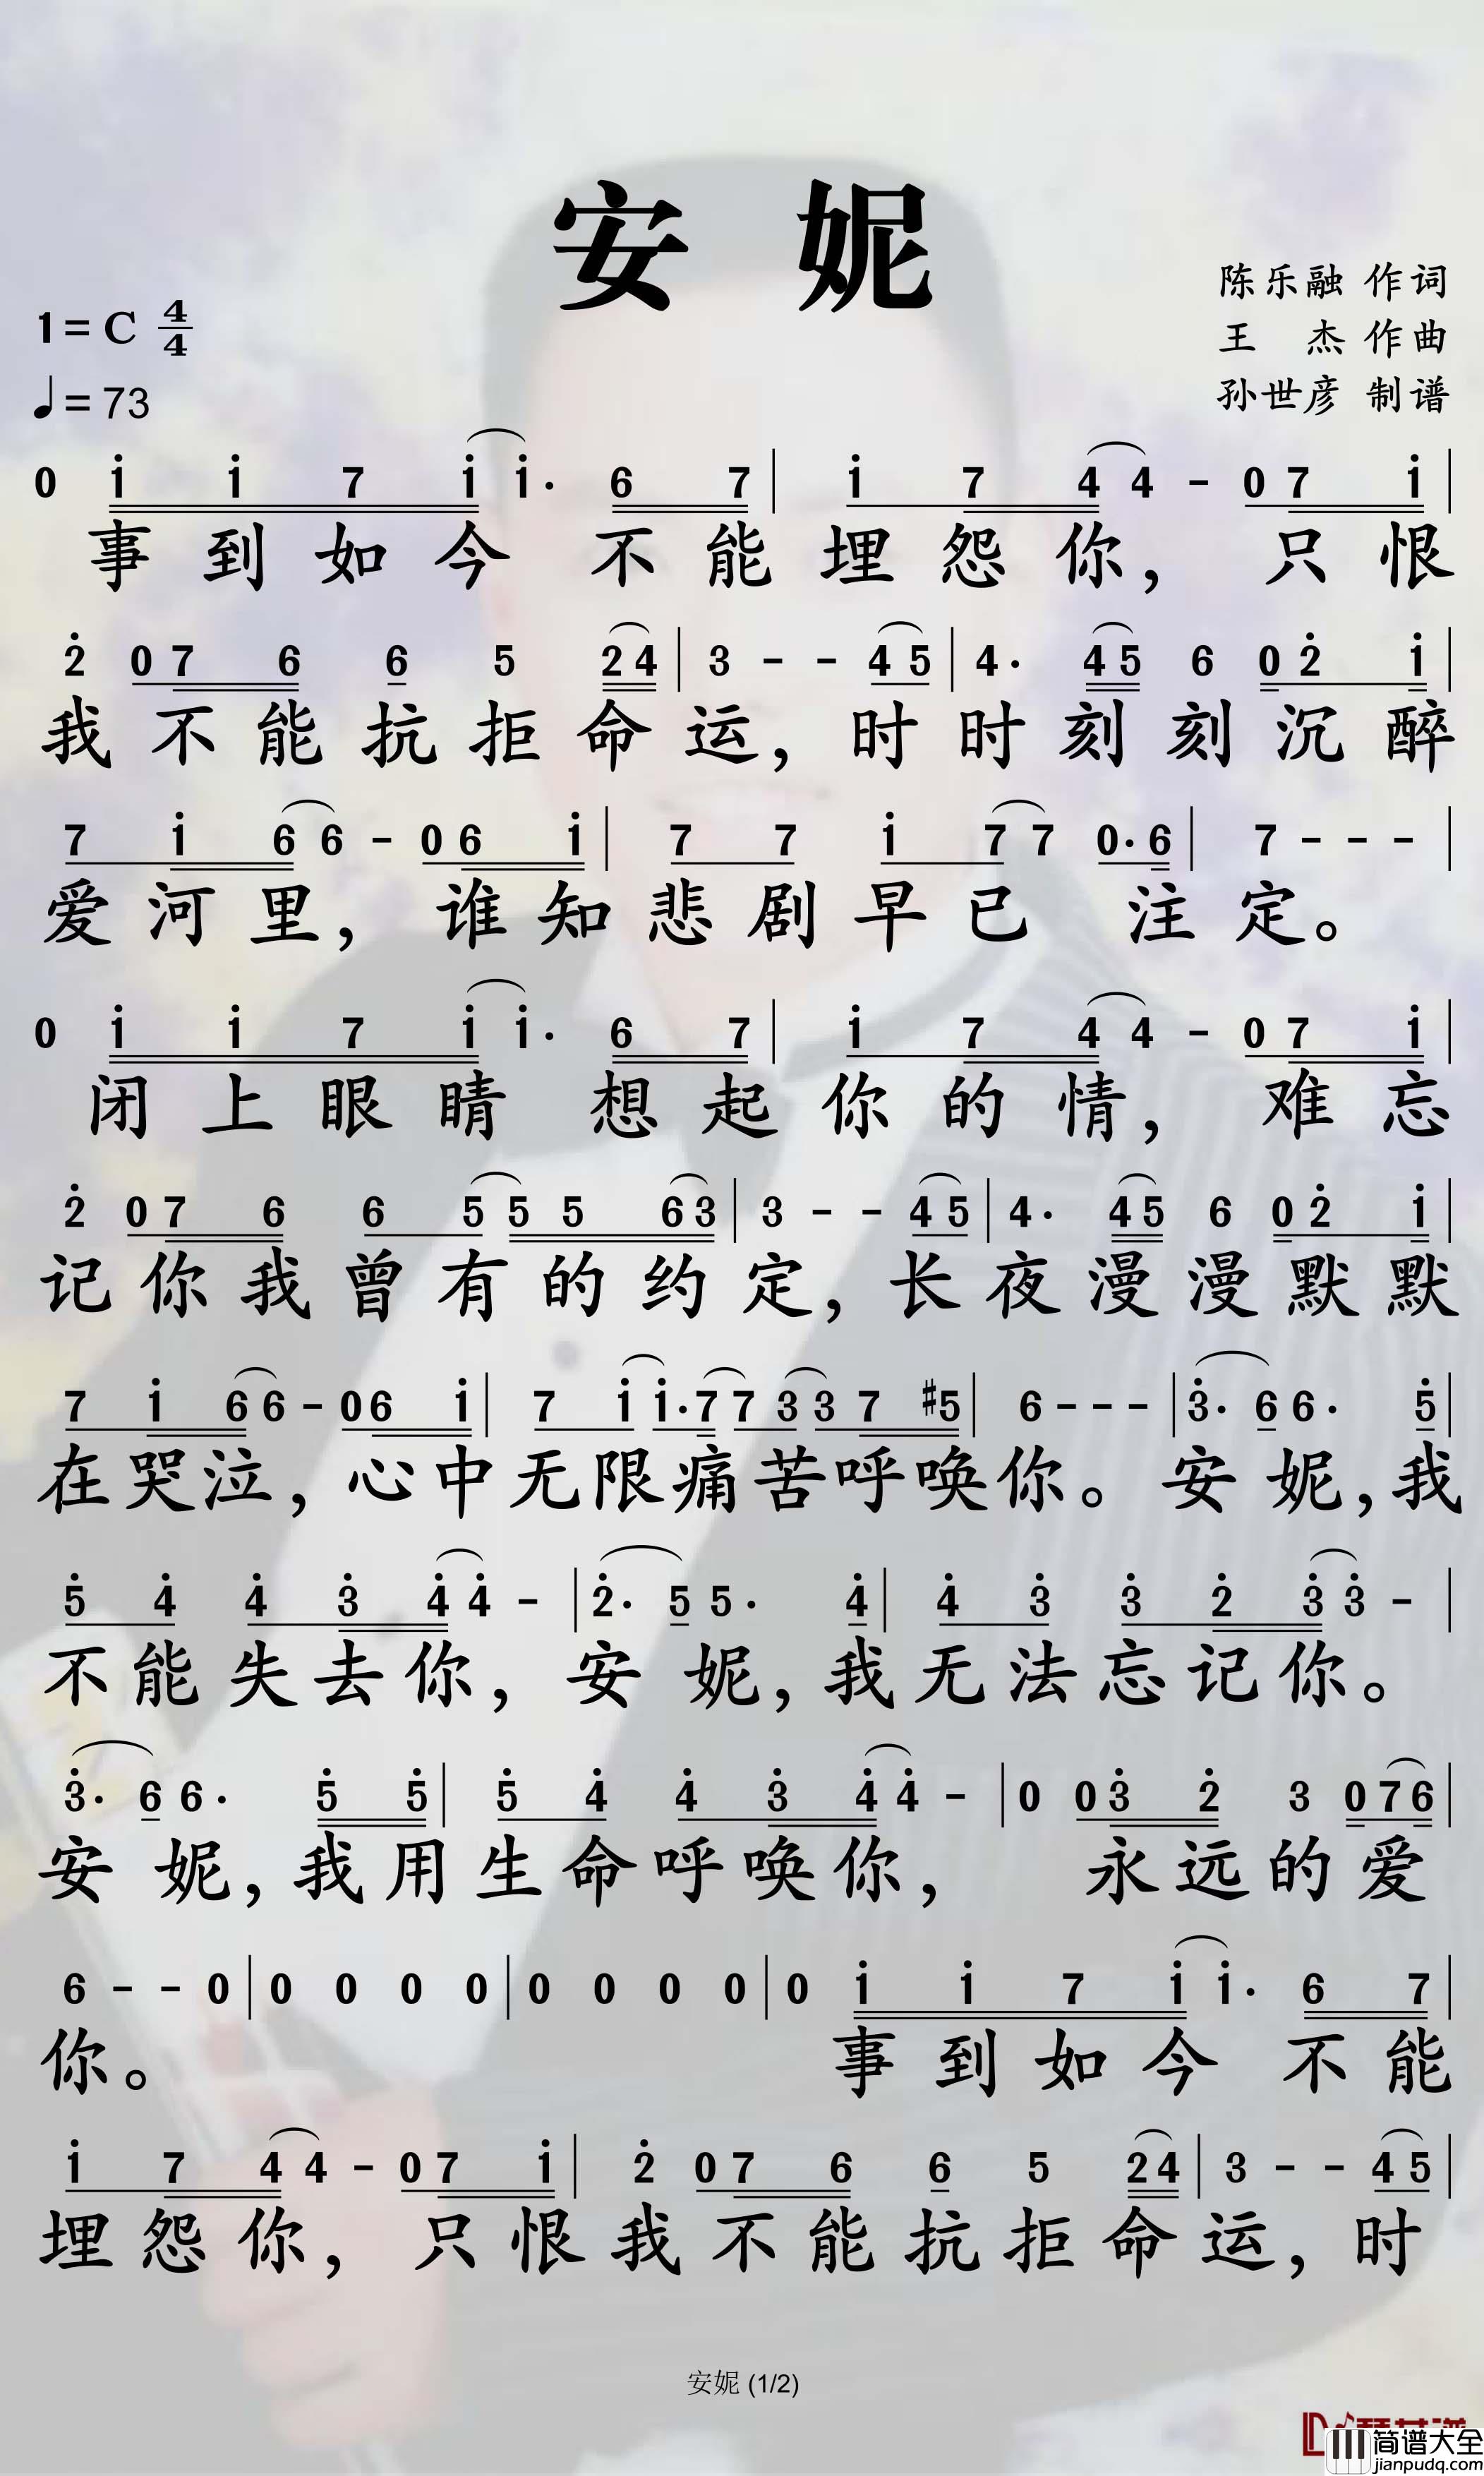 安 妮
陈乐融 作词
1= C 4/4
王 杰 作曲
♩= 73
孙世彦 制谱
0 i i 7 i i· 6 7 | i 7 4 4 - 0 7 i |
事到如今 不能埋怨你，只恨
2̇ 0 7 6 6 5 2 4 | 3 - - 4 5 | 4· 4 5 6 0 2̇ i |
我不能抗拒命运，时时刻刻沉醉
7 i 6 6 - 0 6 i | 7 7 i 7 7 0· 6 | 7 - - - |
爱河里，谁知悲剧早已 注定。
0 i i 7 i i· 6 7 | i 7 4 4 - 0 7 i |
闭上眼睛 想起你的情，难忘
2̇ 0 7 6 6 5 5 5 6 3 | 3 - - 4 5 | 4· 4 5 6 0 2̇ i |
记你我曾有的约定，长夜漫漫默默
7 i 6 6 - 0 6 i | 7 i i· 7 7 3 3 7 #5 | 6 - - - | 3̇· 6 6· 5̇ |
在哭泣，心中无限痛苦呼唤你。安妮，我
5̇ 4̇ 4̇ 3̇ 4̇ 4̇ - | 2̇· 5̇ 5· 4̇ | 4̇ 3̇ 3̇ 2̇ 3̇ 3̇ - |
不能失去你，安妮，我无法忘记你。
3̇· 6̇ 6· 5̇ 5̇ | 5̇ 4̇ 4̇ 3̇ 4̇ 4̇ - | 0 0 3̇ 2̇ 3 0 7 6 |
安妮，我用生命呼唤你， 永远的爱
6 - - 0 | 0 0 0 0 | 0 0 0 0 | 0 i i 7 i i· 6 7 |
你。 事到如今 不能
i 7 4 4 - 0 7 i | 2̇ 0 7 6 6 5 2 4 | 3 - - 4 5 |
埋怨你，只恨我不能抗拒命运，时
安妮 (1/2)
简谱大全
jianpudq.com